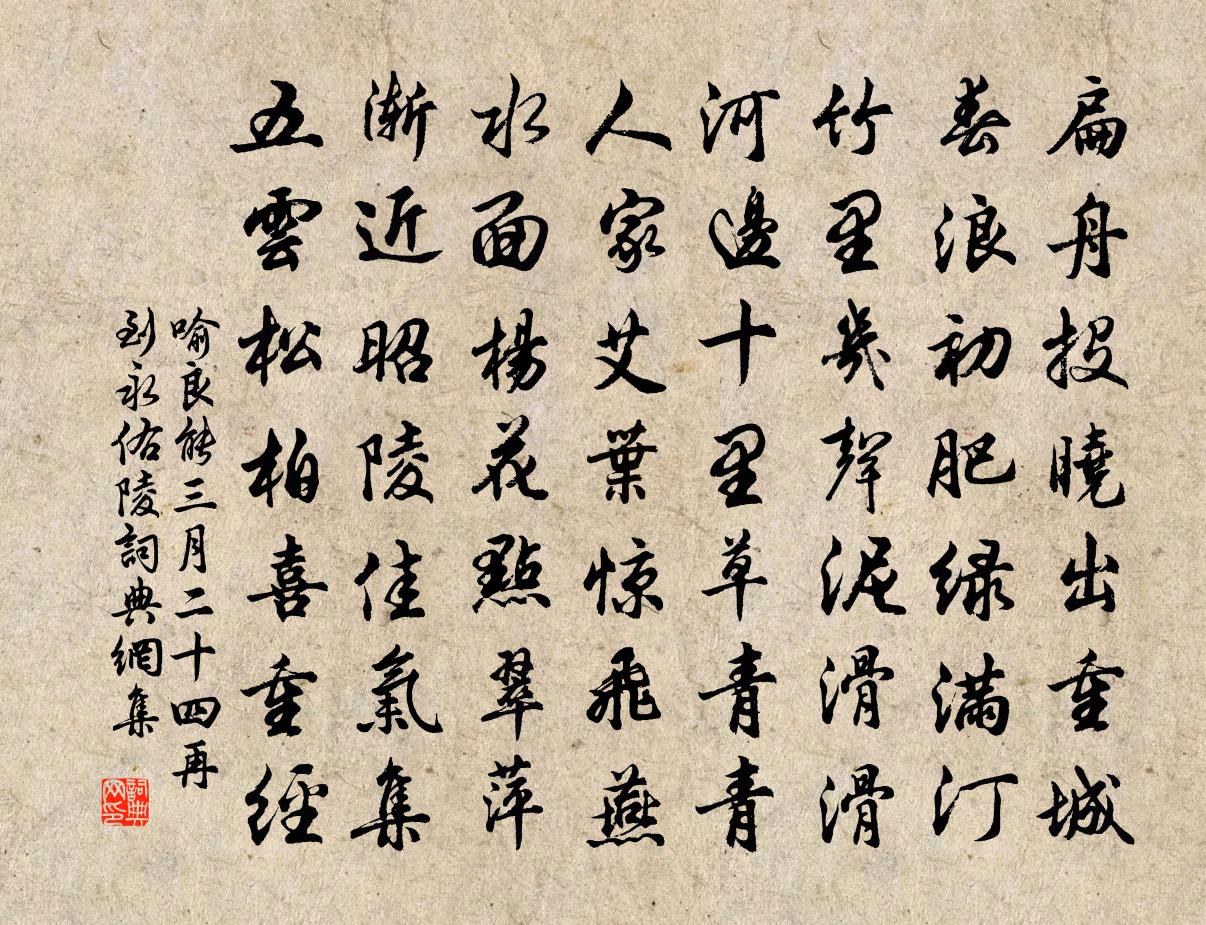 扁舟投曉出重城
春浪初肥綠滿汀
竹里幾聲泥滑滑
河邊十里草青青
人家艾葉惊飛燕
水面楊花點翠萍
漸近昭陵佳氣集
五雲松柏喜重經
喻良能三月二十四再
到永佑陵詞典網集
詞典网印